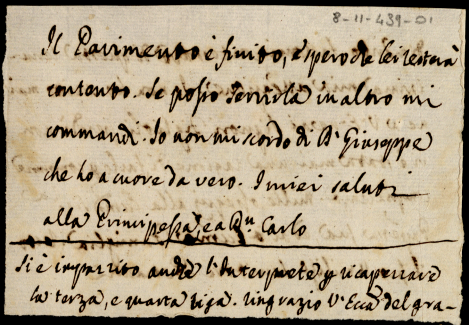 8-11-439-01
Il Pavimento è finito, e spero che lei resterà
contento. Se posso servirla in altro mi
commandi. Io non mi scordo di Dⁿ Giuseppe
che ho a cuore da vero. I miei saluti
alla Principessa, e a Dⁿ Carlo
Si è impazzito anche l'Interprete p ricapezzare
la terza, e quarta riga. ringrazio V. Ecca del gra-